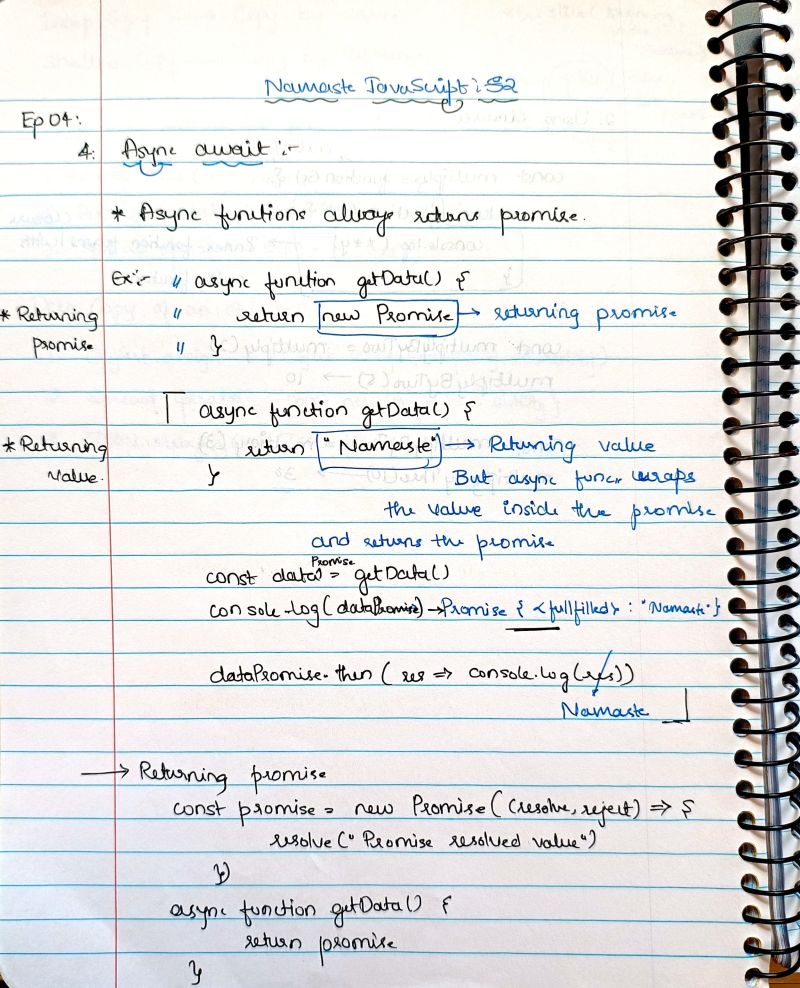 Namaste JavaScript : S2
Ep 04:
4. Async await :-
* Async functions always returns promise.
Ex:- " async function getData() {
* Returning promise " return new Promise → returning promise
" }
async function getData() {
* Returning value. return "Namaste" → Returning value
} But async func. wraps
the value inside the promise
and returns the promise
const dataPromise = getData()
console.log(dataPromise) → Promise { <fullfilled> : "Namaste" }
dataPromise.then ( res => console.log(res))
Namaste
→ Returning promise
const promise = new Promise ((resolve, reject) => {
resolve (" Promise resolved value")
})
async function getData() {
return promise
}